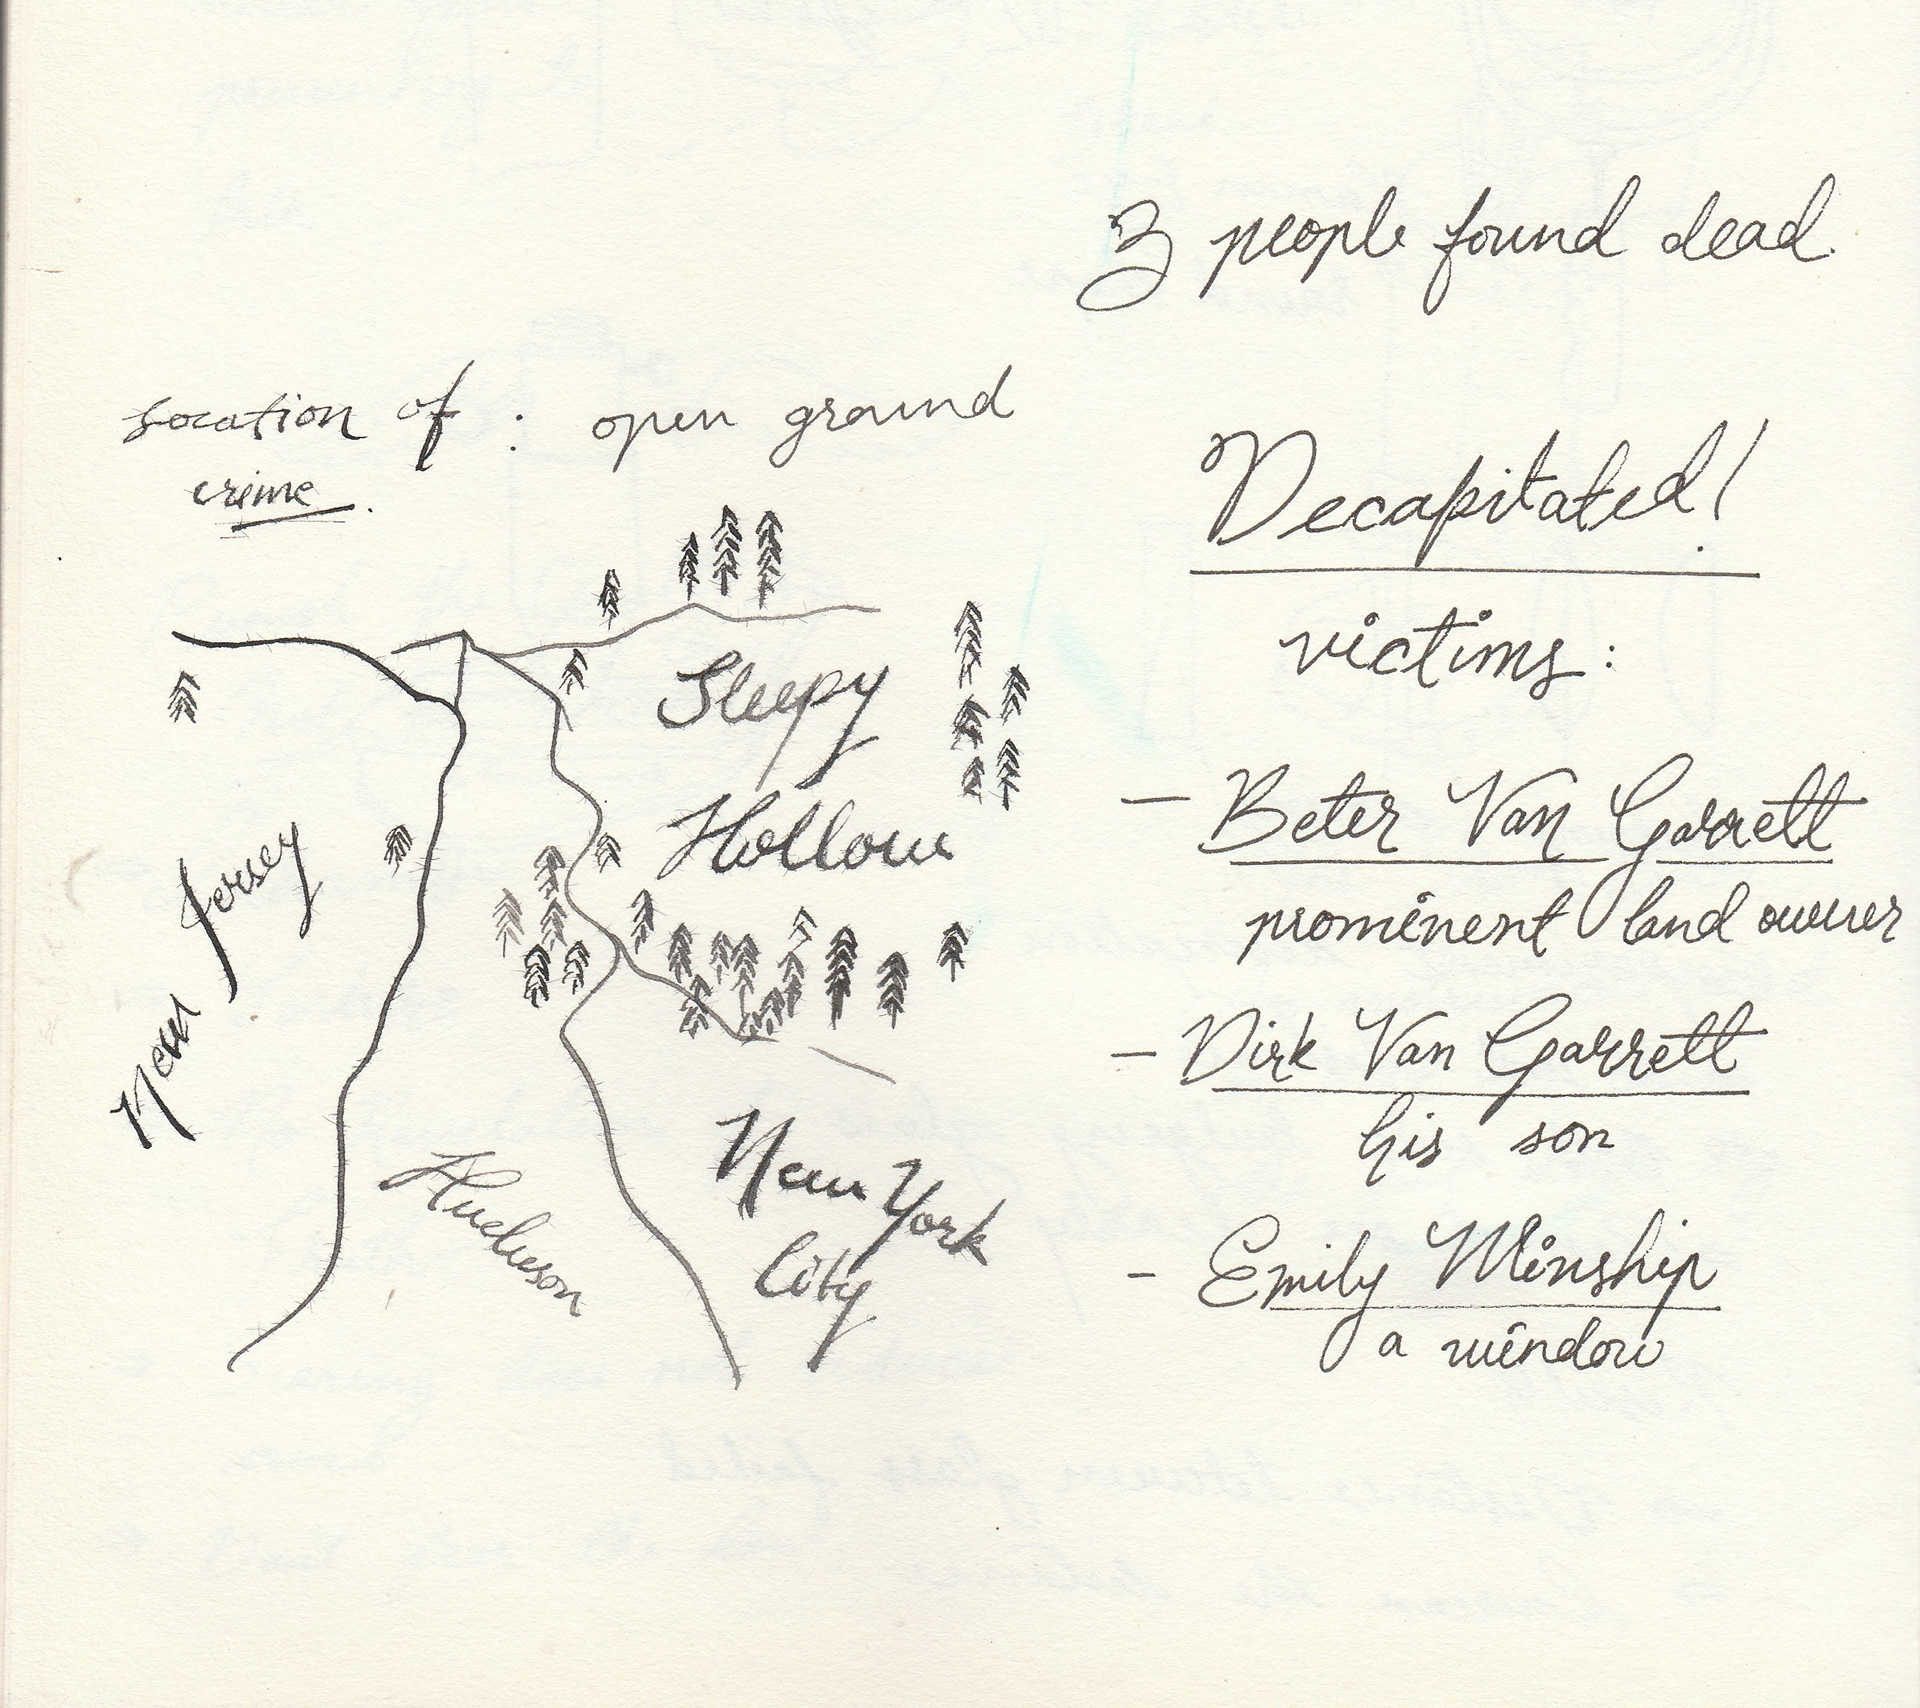 3 people found dead.
location of : open ground
crime.
Decapitated!
victims:
- Beter Van Garrett
prominent land owner
- Dirk Van Garrett
his son
- Emily Minship
a window
Sleepy
Hollow
New Jersey
Hudson
New York
City